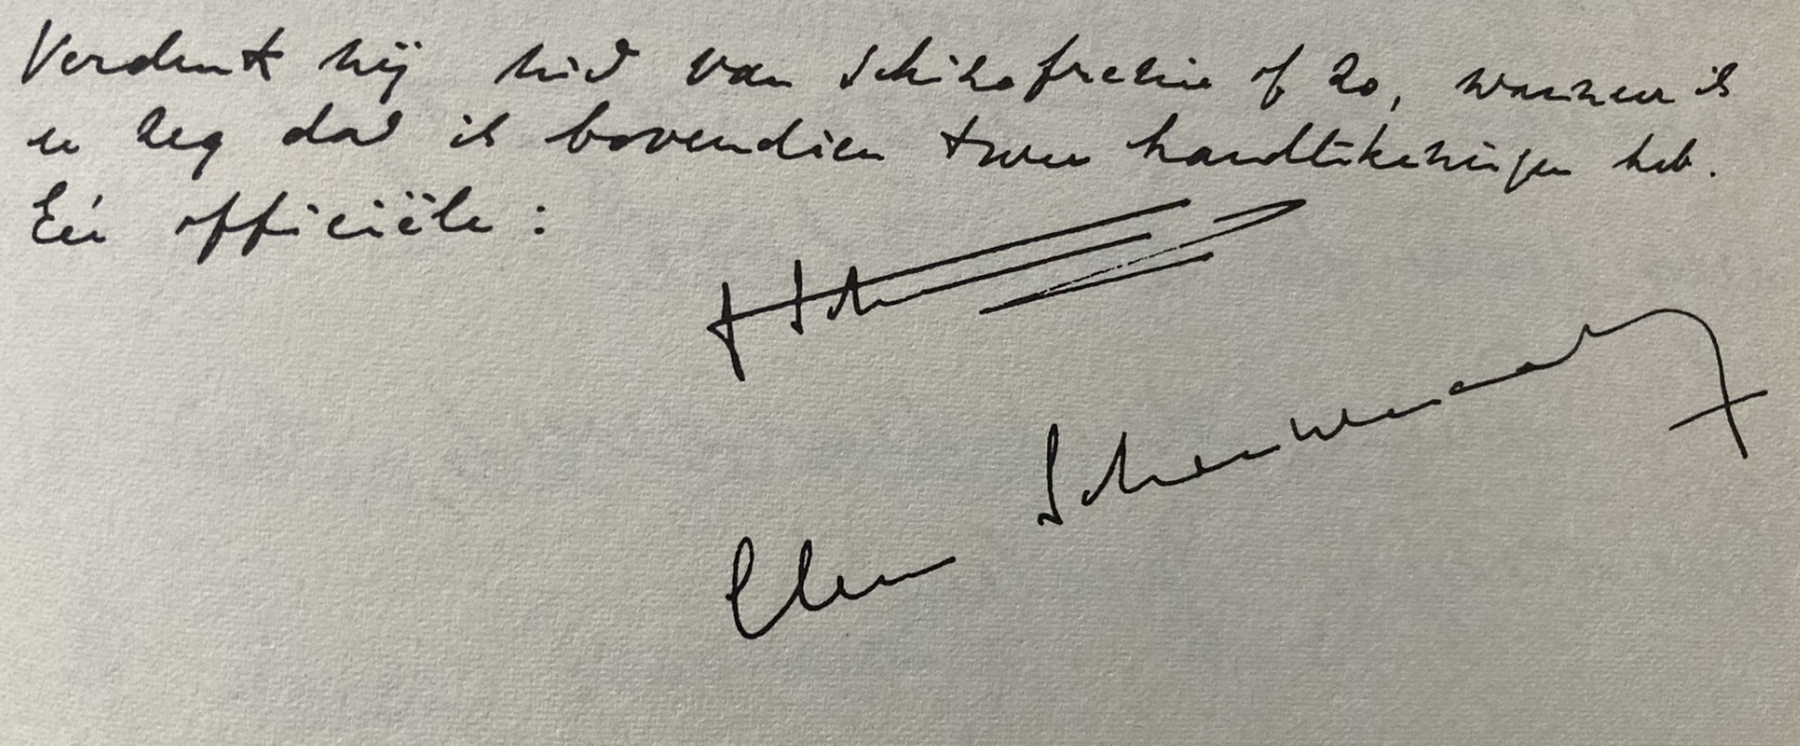 Verdenk mij niet van schizofrenie of zo, wanneer ik
u zeg dat ik bovendien twee handtekeningen heb.
Eén officiële:
Clem Schouwenaars